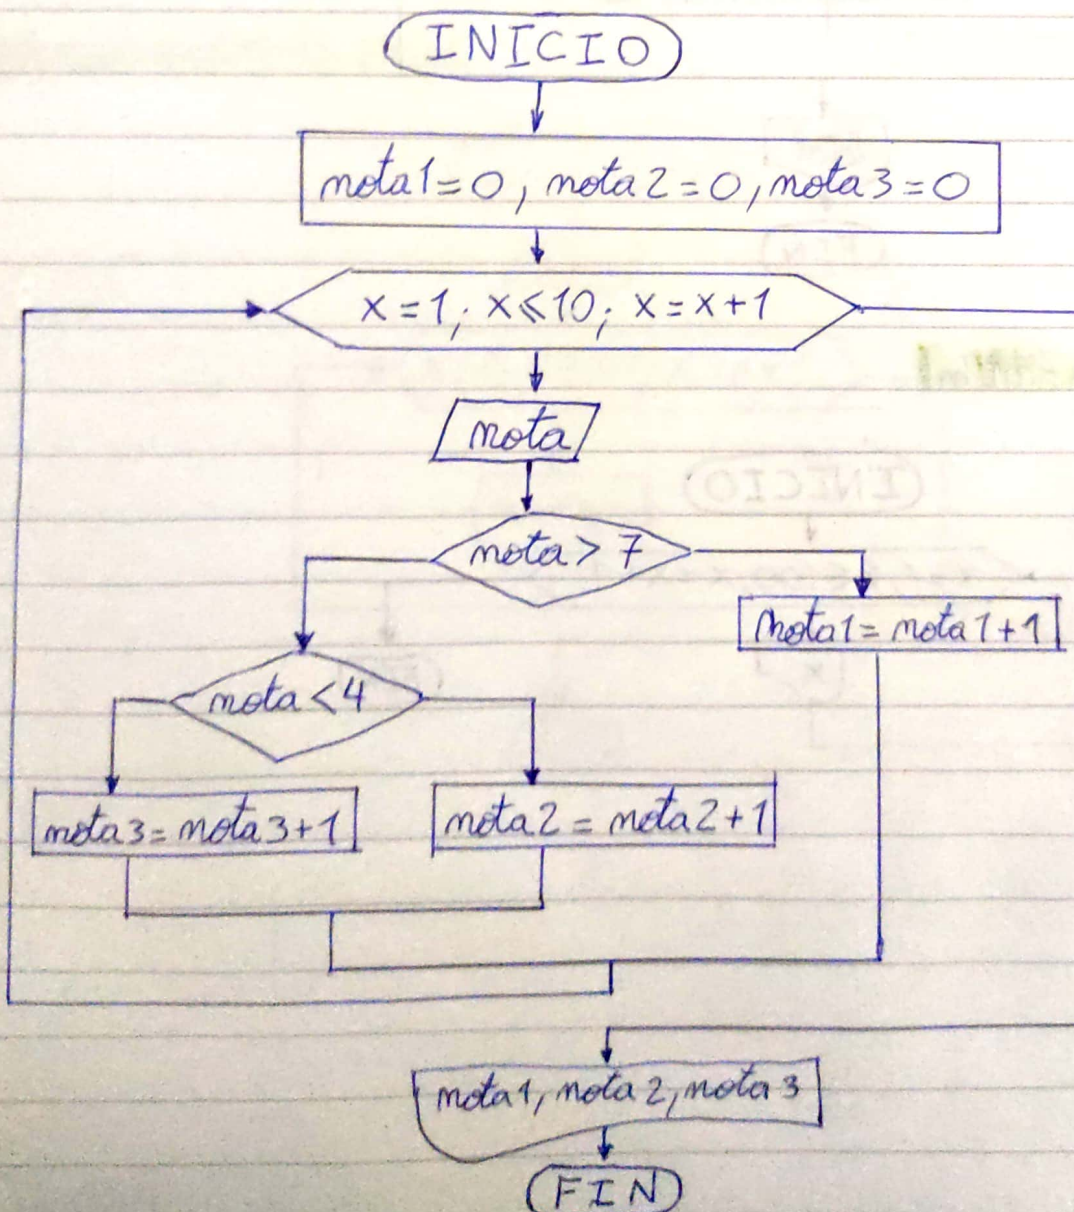 INICIO
nota1=0, nota2=0, nota3=0
x=1; x≤10; x=x+1
nota
nota > 7
nota1= nota1+1
nota <4
nota3= nota3+1
nota2= nota2+1
nota1, nota2, nota3
FIN